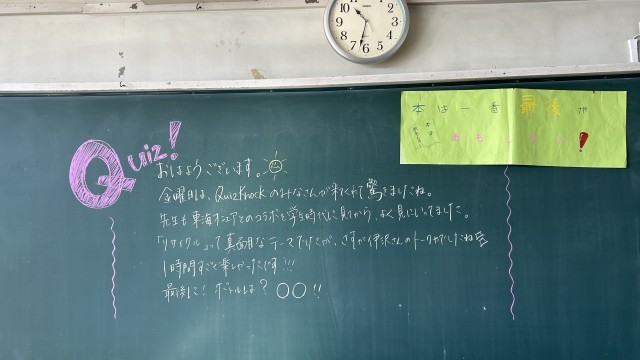 Quiz!
おはようございます。
金曜日は、QuizKnockのみなさんが来てくれて驚きましたね。
先生も東海オンエアとのコラボを学生時代に見てから、よく見にいってました。
「リサイクル」って真面目なテーマでしたが、さすが伊沢さんのトークでしたね
1時間すごく楽しかったです!!!
最後に! ボトルは? ○○!!
本は一番最後が
おもしろい!